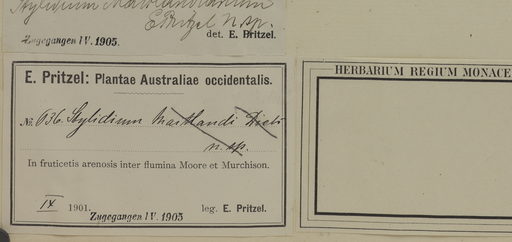 Stylidium Maitlandianum
E. Pritzel n. sp.
Zugegangen IV. 1905.
det. E. Pritzel.
E. Pritzel: Plantae Australiae occidentalis.
No. 636. Stylidium Maitlandi Diels
n. sp.
In fruticetis arenosis inter flumina Moore et Murchison.
IX 1901.
leg. E. Pritzel.
Zugegangen IV. 1905
HERBARIUM REGIUM MONACE